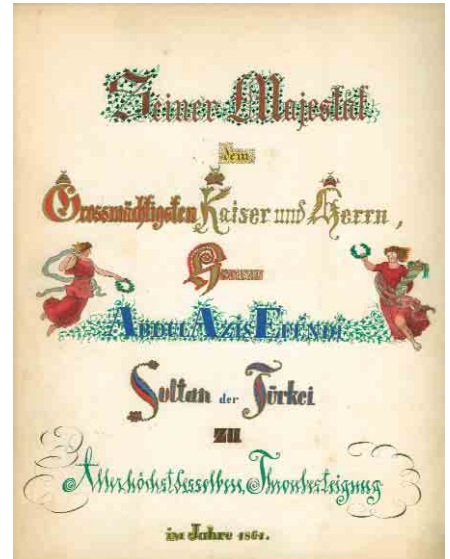 Seiner Majestät
dem
Grossmächtigsten Kaiser und Herrn,
Herrn
ABDUL AZIS EFENDI
Sultan der Türkei
zu
Allerhöchstdesselben Thronbesteigung
im Jahre 1861.